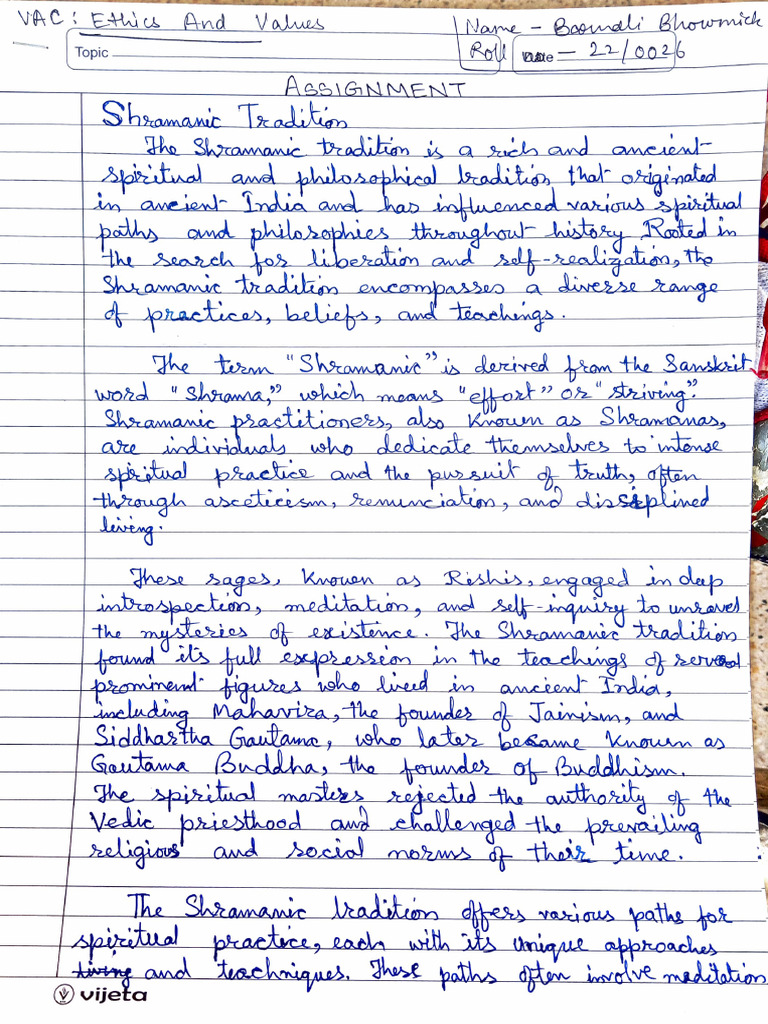 VAC: Ethics And Values
Name - Basmali Bhowmick
Topic
Roll No - 22/0026
Date
ASSIGNMENT
Shramanic Tradition
The Shramanic tradition is a rich and ancient
spiritual and philosophical tradition that originated
in ancient India and has influenced various spiritual
paths and philosophies throughout history. Rooted in
the search for liberation and self-realization, the
Shramanic tradition encompasses a diverse range
of practices, beliefs, and teachings.
The term "Shramanic" is derived from the Sanskrit
word "Shrama," which means "effort" or "striving."
Shramanic practitioners, also known as Shramanas,
are individuals who dedicate themselves to intense
spiritual practice and the pursuit of truth, often
through asceticism, renunciation, and dissiplined
living.
These sages, known as Rishis, engaged in deep
introspection, meditation, and self-inquiry to unravel
the mysteries of existence. The Shramanic tradition
found it's full expression in the teachings of several
prominent figures who lived in ancient India,
including Mahavira, the founder of Jainism, and
Siddhartha Gautama, who later became known as
Gautama Buddha, the founder of Buddhism.
The spiritual masters rejected the authority of the
Vedic priesthood and challenged the prevailing
religious and social norms of their time.
The Shramanic tradition offers various paths for
spiritual practice, each with its unique approaches
living and teachniques. These paths often involve meditation
vijeta